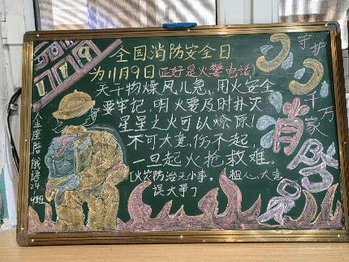 全国消防安全日
为11月9日正好是火警电话
天干物燥风儿急,用火安全
要牢记,明火要及时扑灭
星星之火可以燎原!
不可大意,伤不起,
一旦起火抢救难。
火灾防治无小事,粗心大意
误大事了
守护
千万家
消